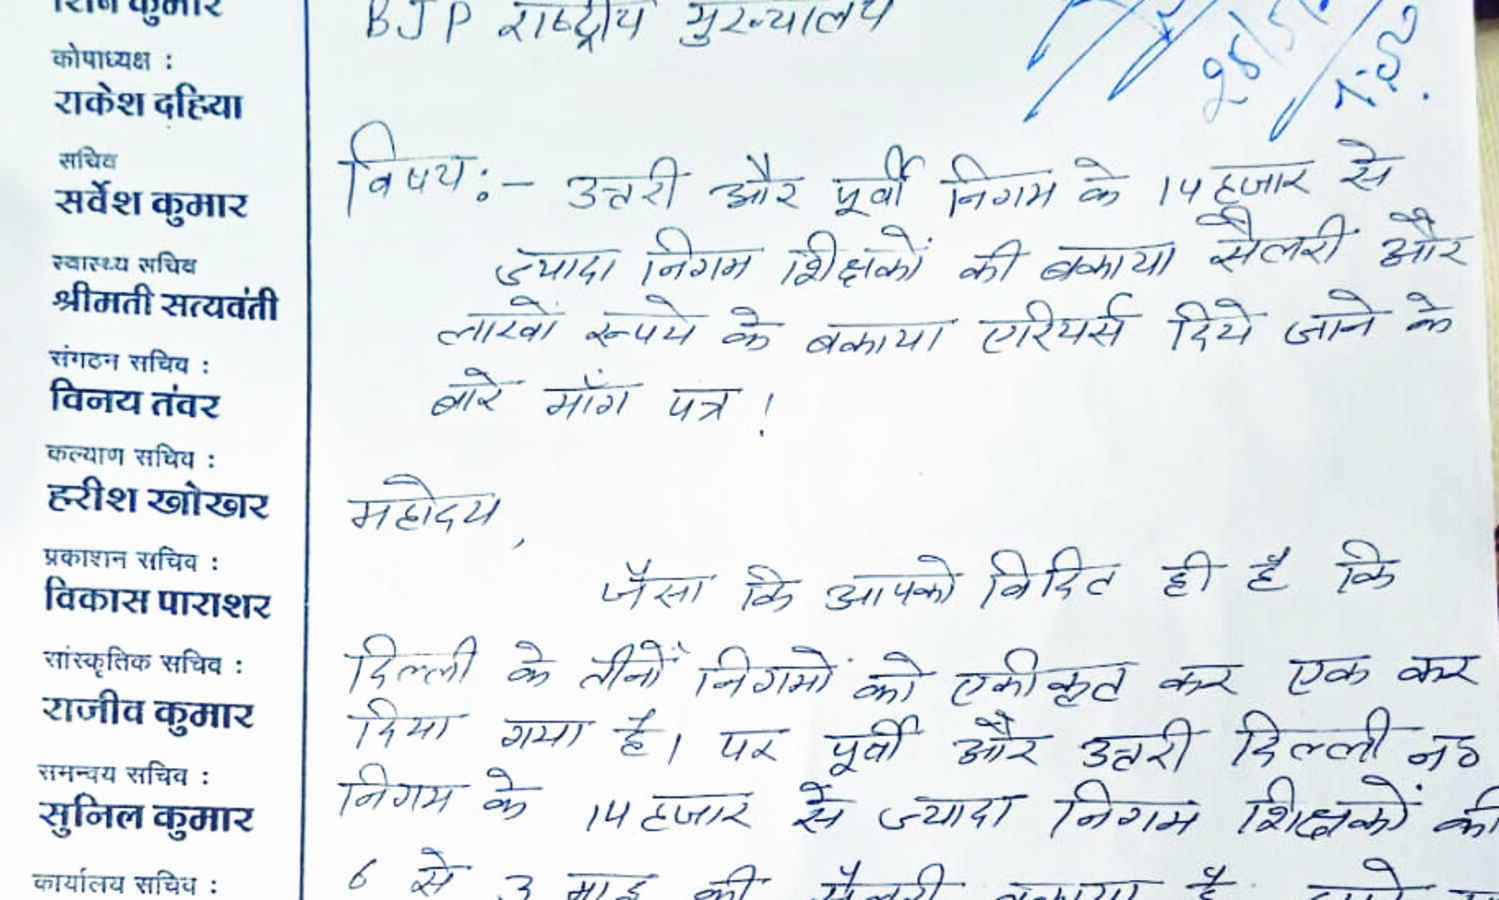 शिव कुमार
कोपाध्यक्ष :
राकेश दहिया
सचिव
सर्वेश कुमार
स्वास्थ्य सचिव
श्रीमती सत्यवंती
संगठन सचिव :
विनय तंवर
कल्याण सचिव :
हरीश खोखर
प्रकाशन सचिव :
विकास पाराशर
सांस्कृतिक सचिव :
राजीव कुमार
समन्वय सचिव :
सुनिल कुमार
कार्यालय सचिव :
BJP राष्ट्रीय मुख्यालय
विषय:- उत्तरी और पूर्वी निगम के 14 हजार से
ज्यादा निगम शिक्षकों की बकाया सैलरी और
लाखों रूपये के बकाया एरियर्स दिये जाने के
बारे माँग पत्र !
महोदय,
जैसा कि आपको विदित ही है कि
दिल्ली के तीनों निगमों को एकीकृत कर एक कर
दिया गया है। पर पूर्वी और उत्तरी दिल्ली
निगम के 14 हजार से ज्यादा निगम शिक्षकों की
6 से 3 माह की सैलरी बकाया है